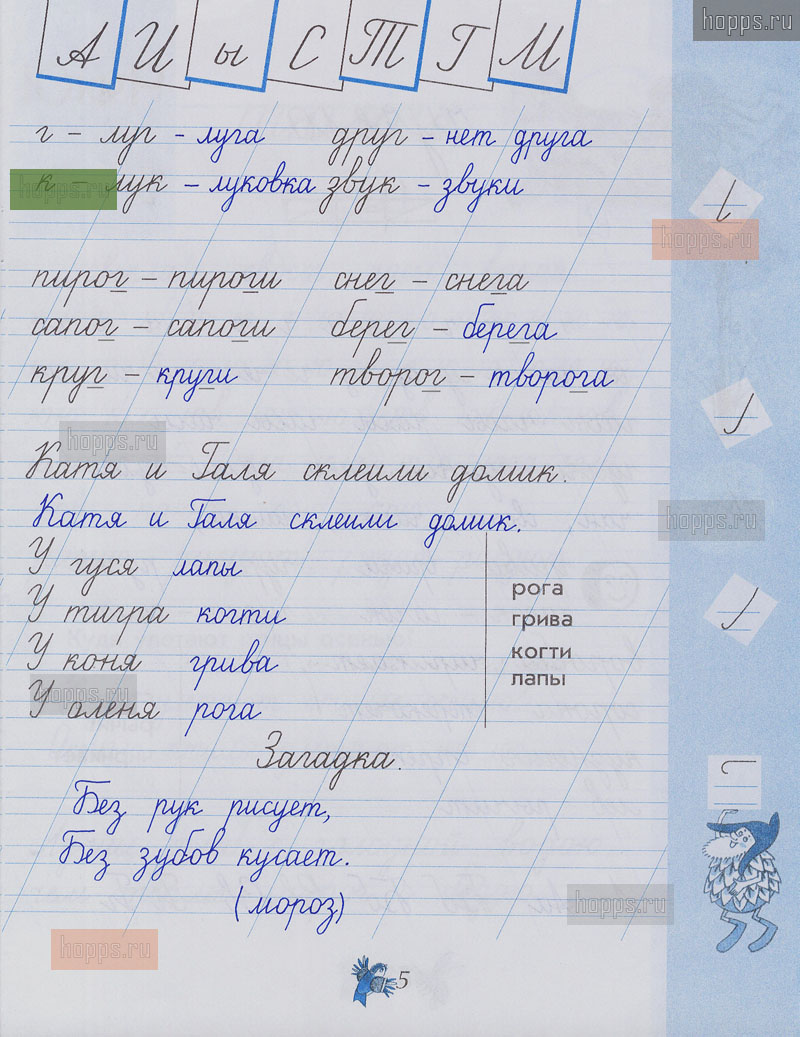 hopps.ru
А И ы С Т Г М
г – луг – луга друг – нет друга
к – лук – луковка звук – звуки
hopps.ru
hopps.ru
пирог – пироги снег – снега
сапог – сапоги берег – берега
круг – круги творог – творога
hopps.ru
Катя и Галя склеили домик.
Катя и Галя склеили домик.
hopps.ru
У гуся лапы
У тигра когти
У коня грива
У оленя рога
рога
грива
когти
лапы
hopps.ru
Загадка.
Без рук рисует,
Без зубов кусает.
(мороз)
hopps.ru
hopps.ru
5